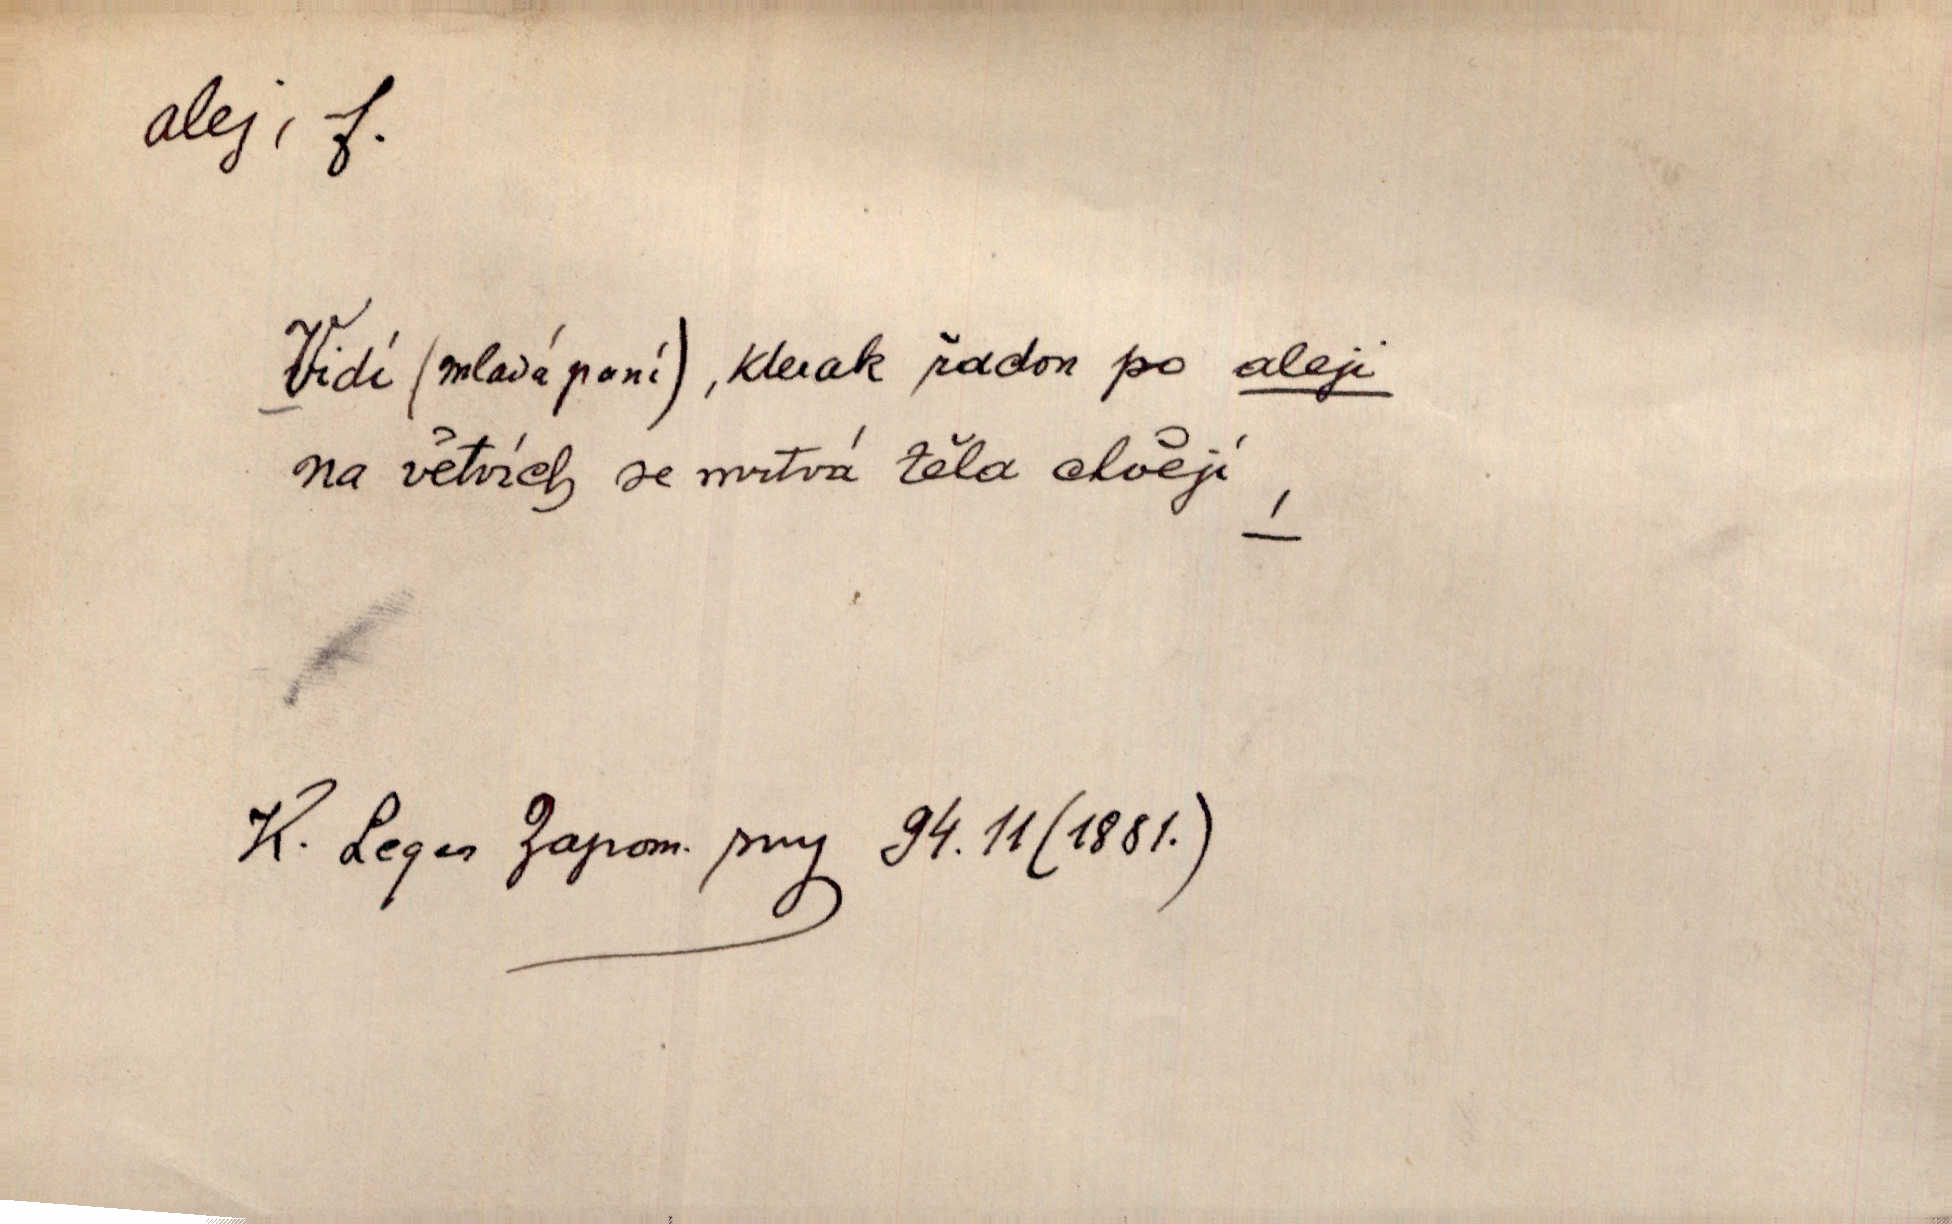 alej, f.
Vidí (mladá paní), kterak řadou po aleji
na větvích se mrtvá těla chvějí
K. Leger Zapom. sny 94. 11 (1881.)